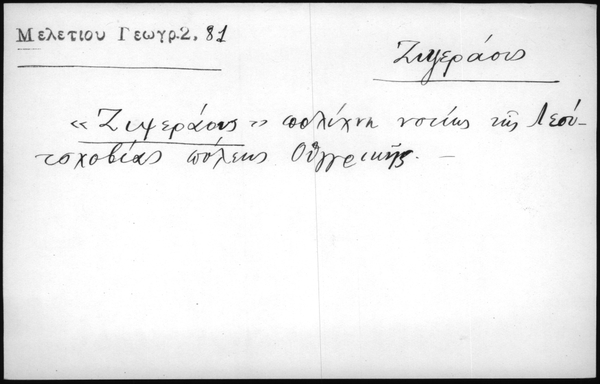 Μελετίου Γεωγρ. 2, 81
Ζιψεράους
«Ζιψεράους» πολίχνη νοτίως τῆς Λεού-
τσχοβίας πόλεως Οὑγγρικῆς. —